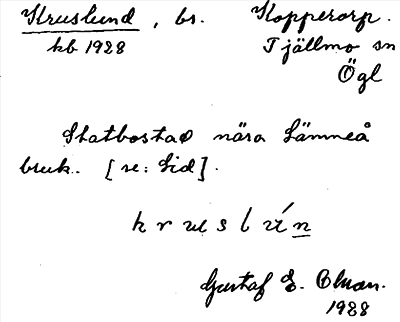 Kruslund, bs. Kopperorp.
kb 1928 Tjällmo sn
Ögl
Statbostad nära Sämmeå
bruk. [se: Lid].
k r u s l ú n
Gustaf E.
1928